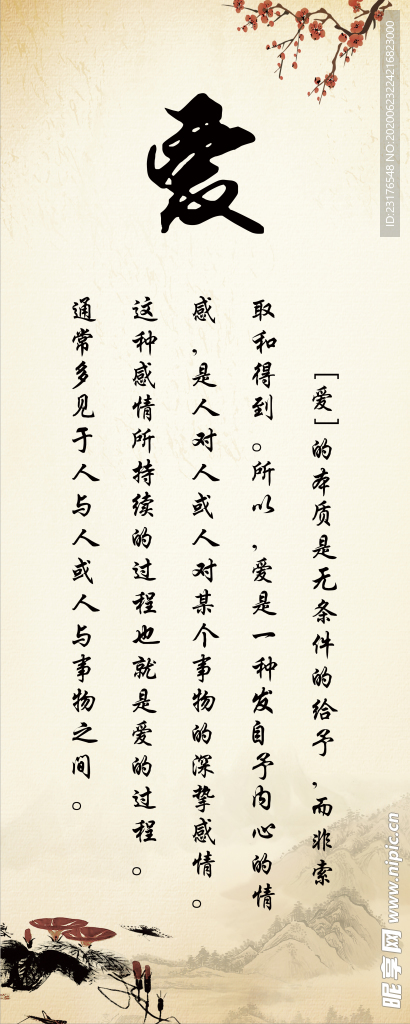 爱
［爱］的本质是无条件的给予，而非索
取和得到。所以，爱是一种发自予内心的情
感，是人对人或人对某个事物的深挚感情。
这种感情所持续的过程也就是爱的过程。
通常多见于人与人或人与事物之间。
ID:23176548 NO:20200623224216823000
昵享网 www.nipic.cn